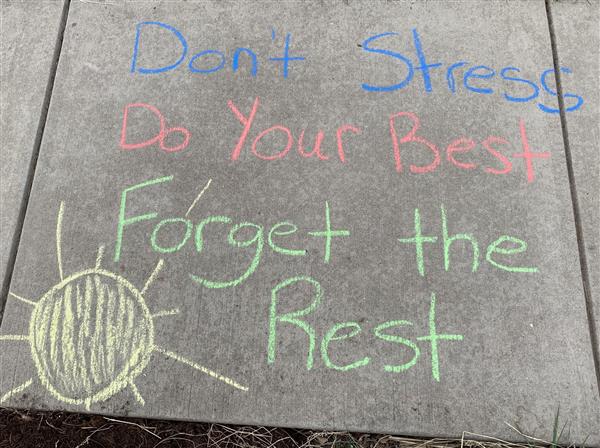 Don't Stress
Do Your Best
Forget the
Rest